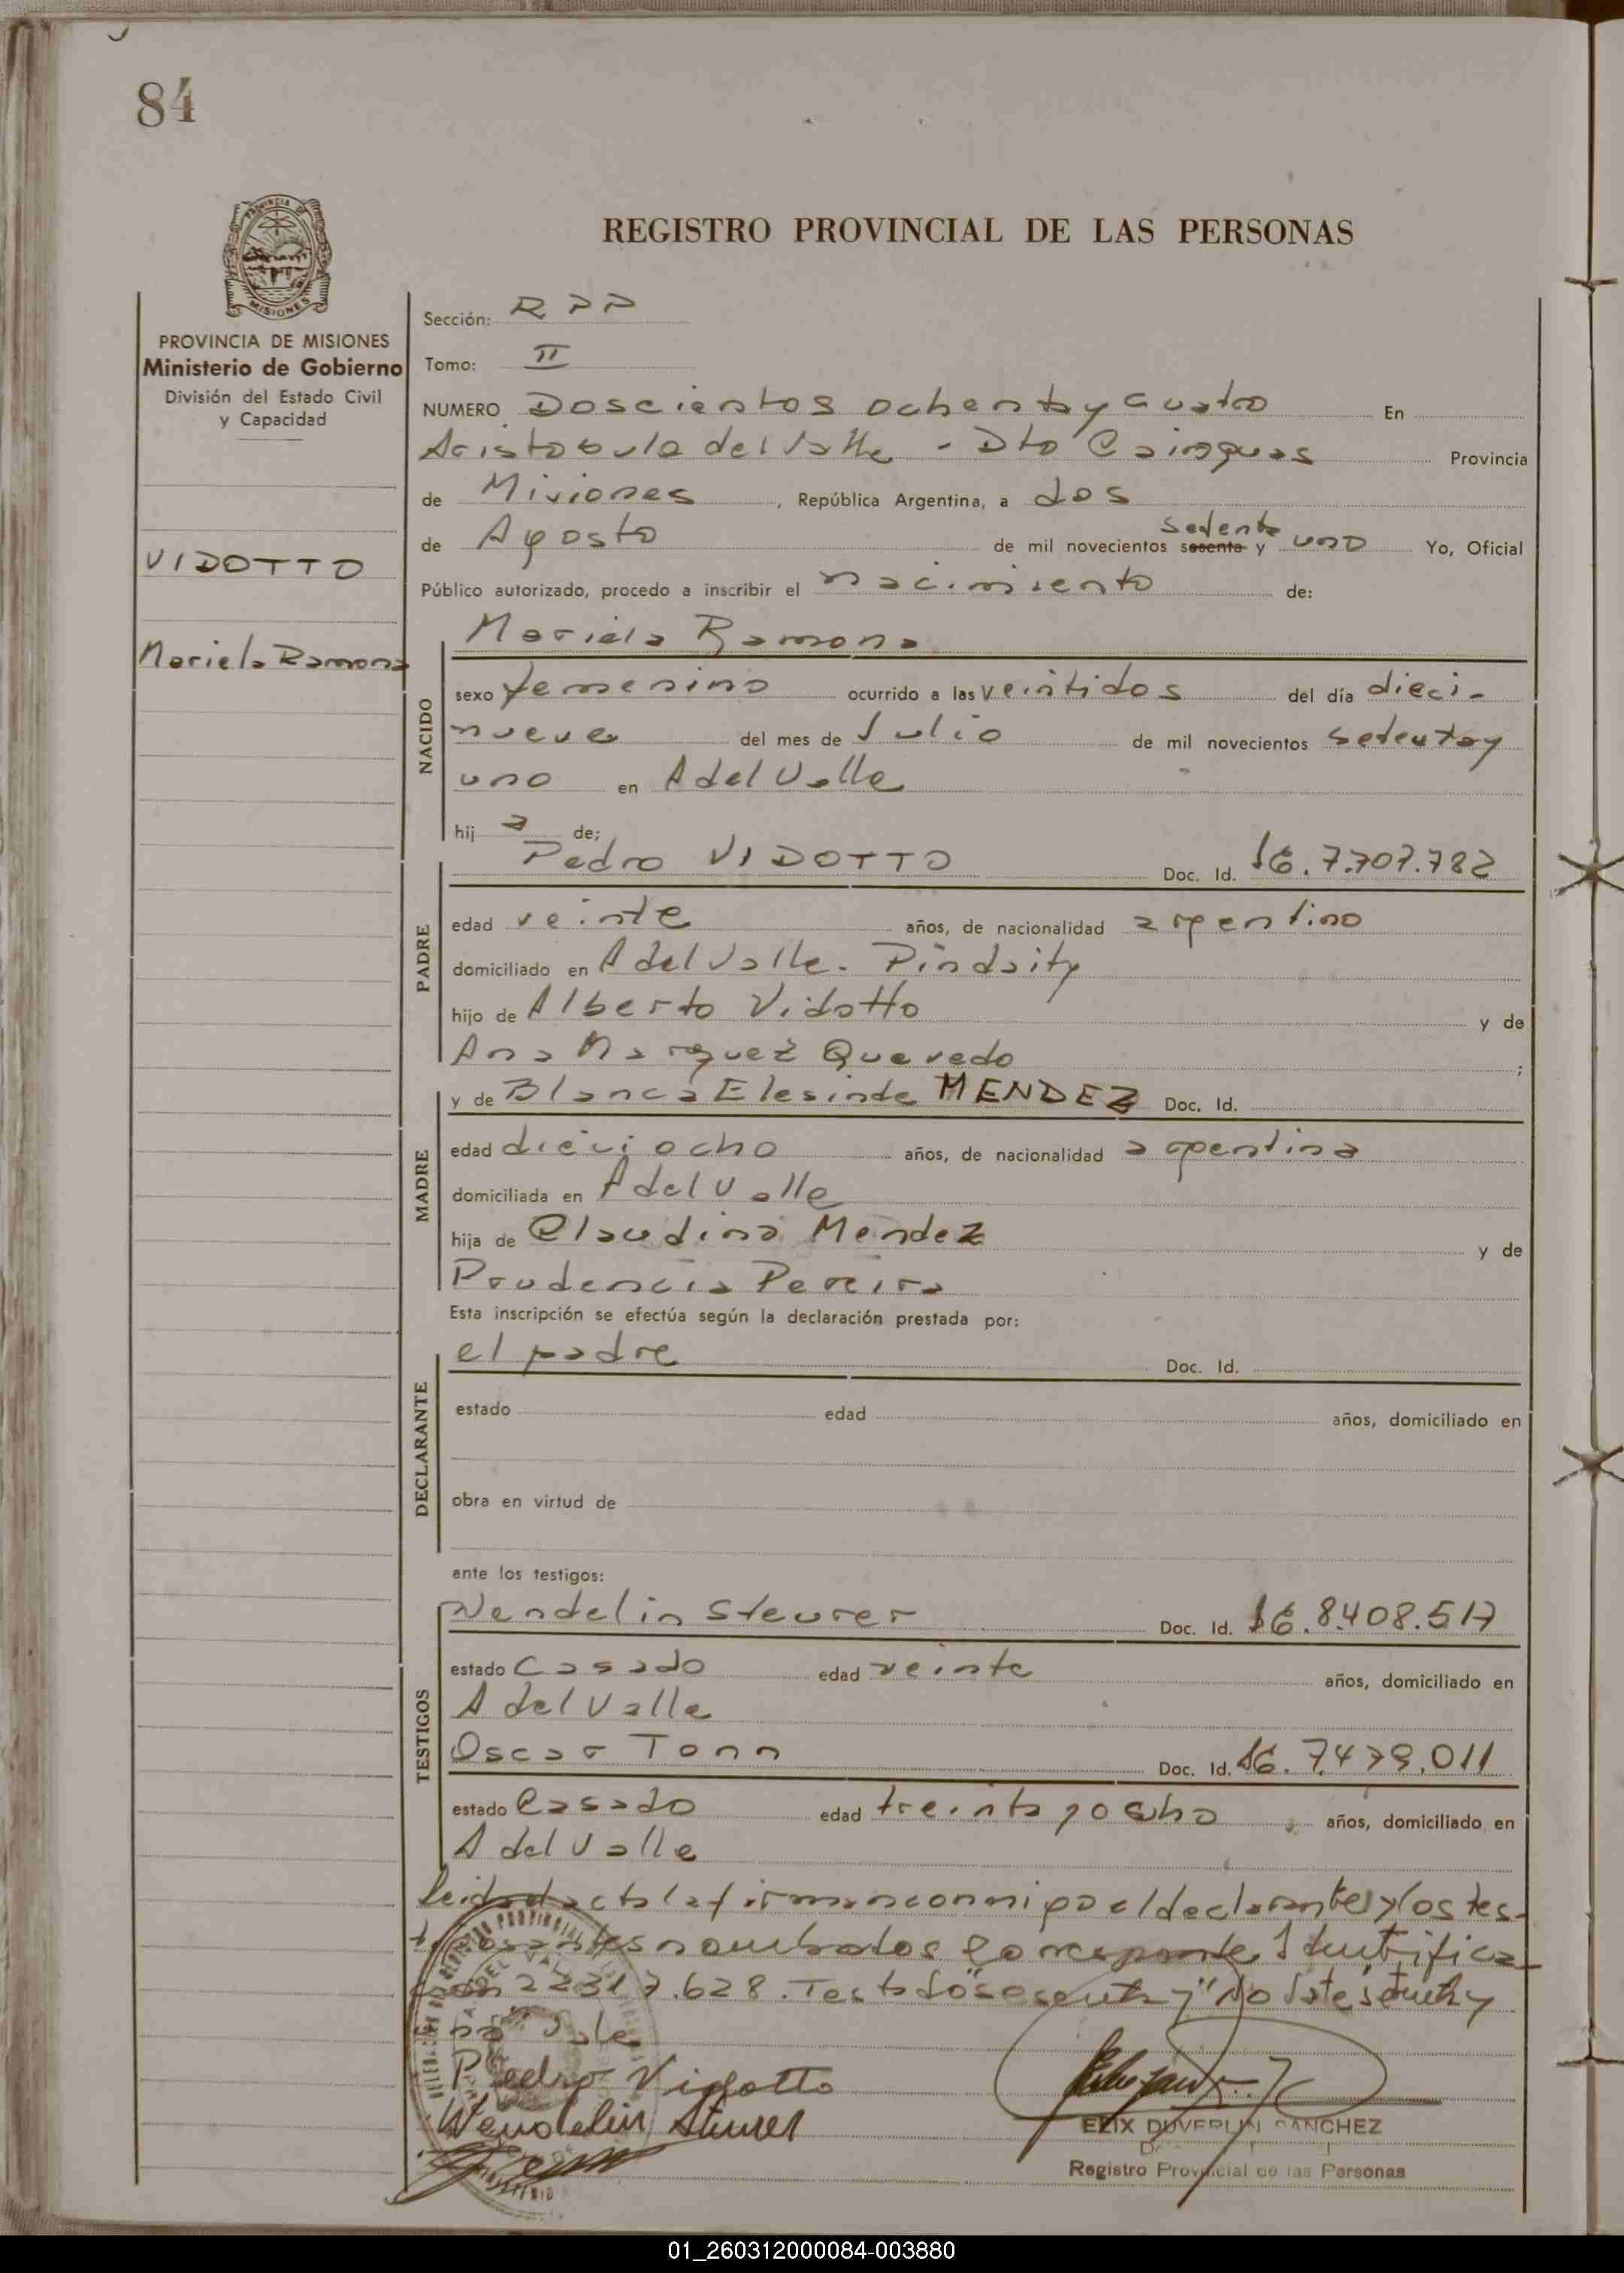 84
PROVINCIA DE
MISIONES
REGISTRO PROVINCIAL DE LAS PERSONAS
PROVINCIA DE MISIONES
Ministerio de Gobierno
División del Estado Civil
y Capacidad
VIDOTTO
Mariela Ramona
Sección: RPP
Tomo: II
NUMERO Doscientos ochenta y cuatro En
Aristobulo del Valle - Dto Cainguas Provincia
de Misiones, República Argentina, a dos
setenta
de Agosto de mil novecientos sesenta y uno Yo, Oficial
Público autorizado, procedo a inscribir el nacimiento de:
Mariela Ramona
NACIDO
sexo femenino ocurrido a las veintidos del día dieci-
nueve del mes de Julio de mil novecientos setenta y
uno en A del Valle
hij a de;
Pedro VIDOTTO Doc. Id. 7.707.782
PADRE
edad veinte años, de nacionalidad argentino
domiciliado en A del Valle - Pindaity
hijo de Alberto Vidotto y de
Ana Marquez Quevedo ;
y de Blanca Elesinda MENDEZ Doc. Id.
MADRE
edad dieciocho años, de nacionalidad argentina
domiciliada en A del Valle
hija de Claudina Mendez y de
Prudencia Pereira
Esta inscripción se efectúa según la declaración prestada por:
el padre Doc. Id.
DECLARANTE
estado edad años, domiciliado en
obra en virtud de
ante los testigos:
Wendelin Steurer Doc. Id. 8.408.517
TESTIGOS
estado Casado edad veinte años, domiciliado en
A del Valle
Oscar Tonn Doc. Id. 7.479.011
estado Casado edad treinta y ocho años, domiciliado en
A del Valle
Leida el acta la firman conmigo el declarante y los tes-
tigos antes nombrados corresponde Identifica
cion 22317.628. Testado "sesenta y" No Vale setenta y
Vale
Pedro Vidotto
Wendelin Steurer
ELIX DUVERLIN SANCHEZ
Registro Provincial de las Personas
01_260312000084-003880